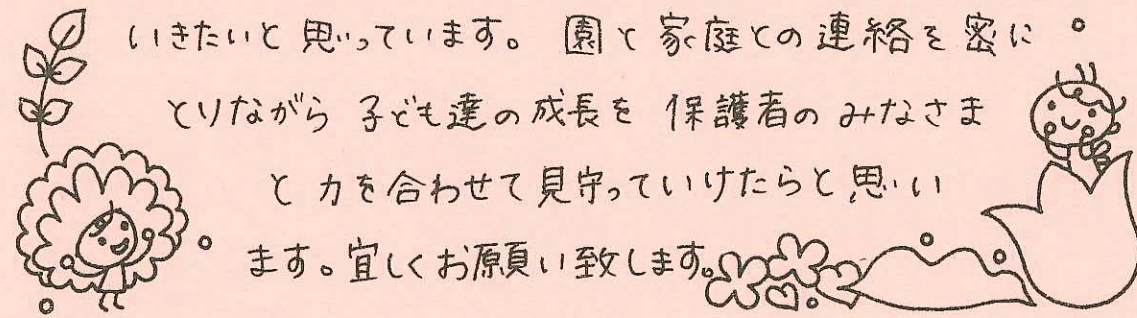 いきたいと思っています。 園と家庭との連絡を密に
とりながら 子ども達の成長を 保護者の みなさま
と 力を合わせて見守っていけたらと思い
ます。宜しくお願い致します。